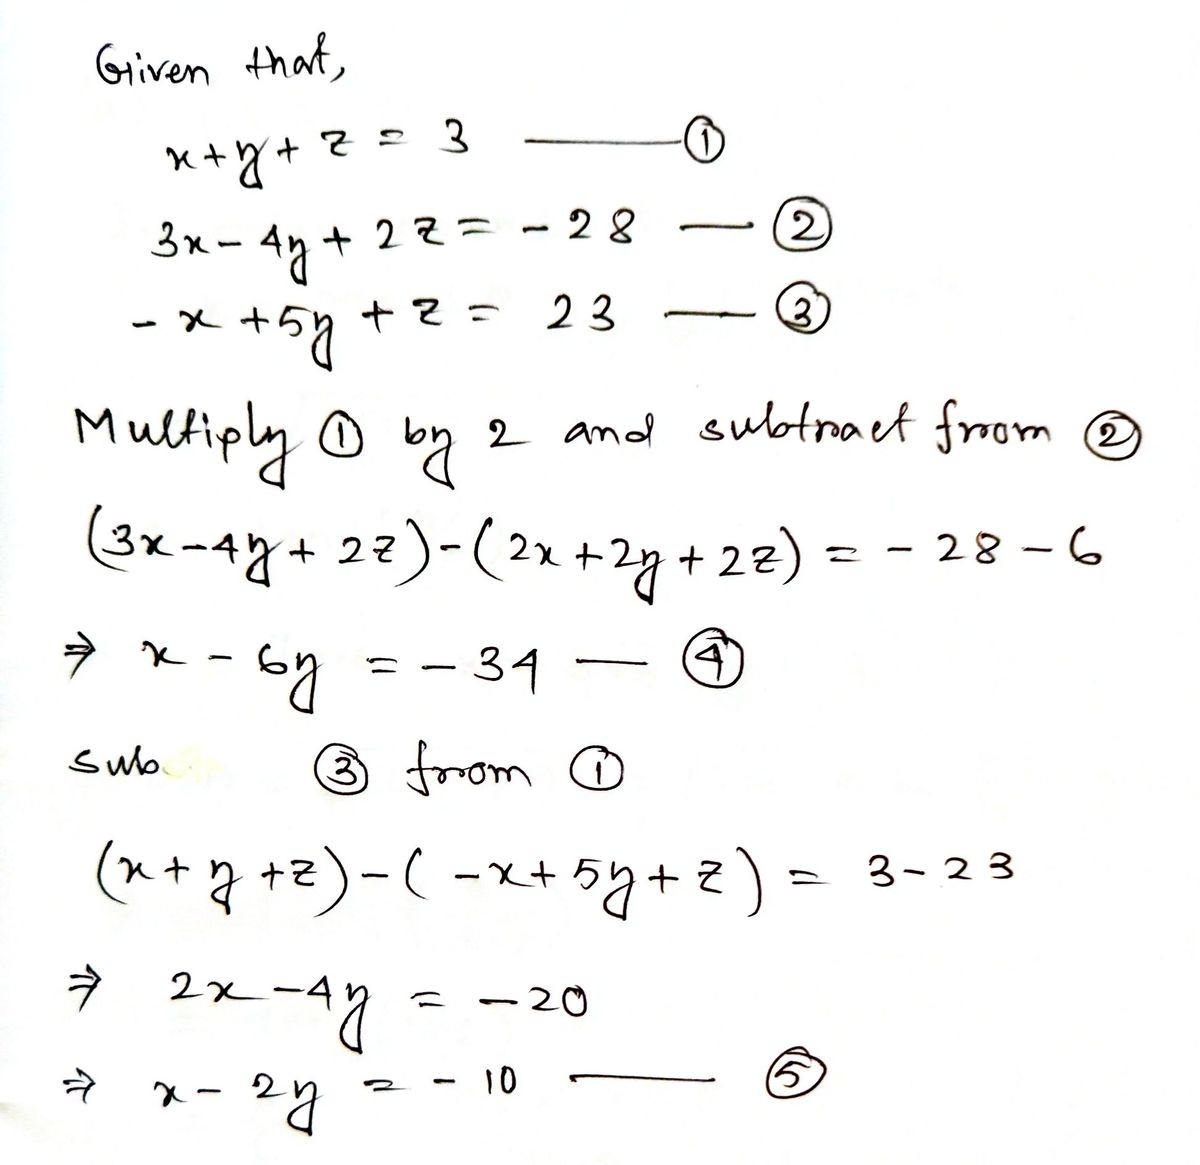 Given that,
x+y+z = 3 —— ①
3x-4y+2z = -28 — ②
-x+5y+z = 23 — ③
Multiply ① by 2 and subtract from ②
(3x-4y+2z)-(2x+2y+2z) = -28-6
⇒ x-6y = -34 — ④
sub ③ from ①
(x+y+z)-(-x+5y+z) = 3-23
⇒ 2x-4y = -20
⇒ x-2y = -10 —— ⑤